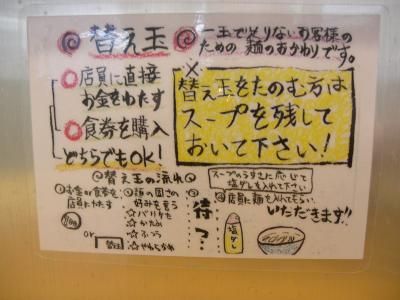 替え玉
一玉で足りないお客様の
ための麺のおかわりです。
店員に直接
お金をわたす
食券を購入
どちらでもOK!
替え玉をたのむ方は
スープを残して
おいて下さい!
替え玉の流れ
①お金か食券を
店員にわたす
or
替玉
②麺の固さの
好みを言う
☆バリカタ
☆かため
☆ふつう
☆やわらかめ
③待つ
スープのうすさに応じて
塩ダレを入れて下さい
塩ダレ
④店員に麺を入れてもらい
いただきます!!